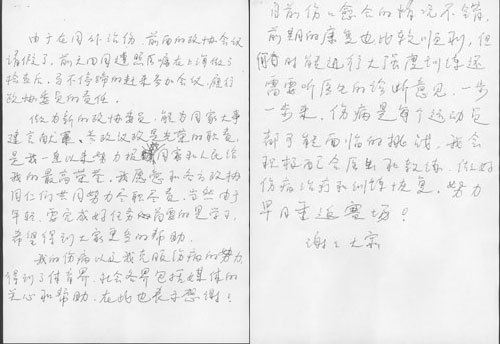 由于在国外治伤，前面的政协会议
请假了，前天回国遵照医嘱在上海做了
检查后，马不停蹄的赶来参加会议，履行
政协委员的责任。
做为新的政协委员，能为国家大事
建言献策、参政议政是光荣的职责，
是我一直以来努力报 国家和人民给
我的最高荣誉。我愿意和各方政协
同仁们共同努力尽职尽责。当然由于
年轻，要完成好任务 需要的是学习，
希望得到大家更多的帮助。
我的伤病以这我克服伤病的努力
得到了体育界、社会各界包括媒体的
关心和帮助，在此也表示感谢！
目前伤口愈合的情况不错，
前期的康复也比较顺利，但
何时能进行大强度训练还
需要听医生的诊断意见，一步
一步来。伤病是每个运动员
都可能面临的挑战，我会
积极配合医生和教练，做好
伤病治疗和训练恢复，努力
早日重返赛场！
谢谢大家